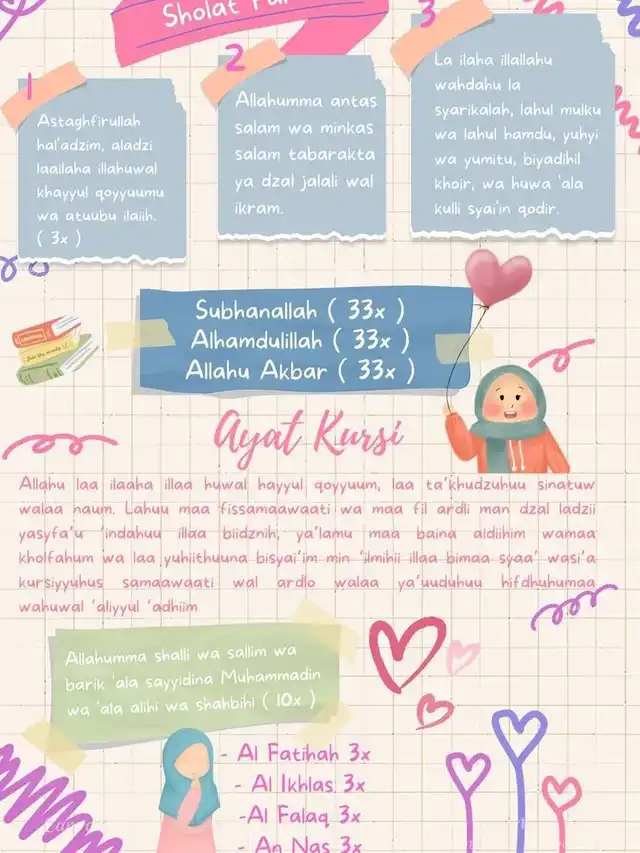 Sholat
1
Astaghfirullah
hal'adzim, aladzi
laailaha illahuwal
khayyul qoyyuumu
wa atuubu ilaiih.
( 3x )
2
Allahumma antas
salam wa minkas
salam tabarakta
ya dzal jalali wal
ikram.
3
La ilaha illallahu
wahdahu la
syarikalah, lahul mulku
wa lahul hamdu, yuhyi
wa yumitu, biyadihil
khoir, wa huwa 'ala
kulli syai'in qodir.
Subhanallah ( 33x )
Alhamdulillah ( 33x )
Allahu Akbar ( 33x )
Ayat Kursi
Allahu laa ilaaha illaa huwal hayyul qoyyuum, laa ta'khudzuhuu sinatuw
walaa naum. Lahuu maa fissamaawaati wa maa fil ardli man dzal ladzii
yasyfa'u 'indahuu illaa biidznih, ya'lamu maa baina aidiihim wamaa
kholfahum wa laa yuhiithuuna bisyai'im min 'ilmihii illaa bimaa syaa' wasi'a
kursiyyuhus samaawaati wal ardlo walaa ya'uuduhuu hifdhuhumaa
wahuwal 'aliyyul 'adhiim
Allahumma shalli wa sallim wa
barik 'ala sayyidina Muhammadin
wa 'ala alihi wa shahbihi ( 10x )
- Al Fatihah 3x
- Al Ikhlas 3x
-Al Falaq 3x
- An Nas 3x